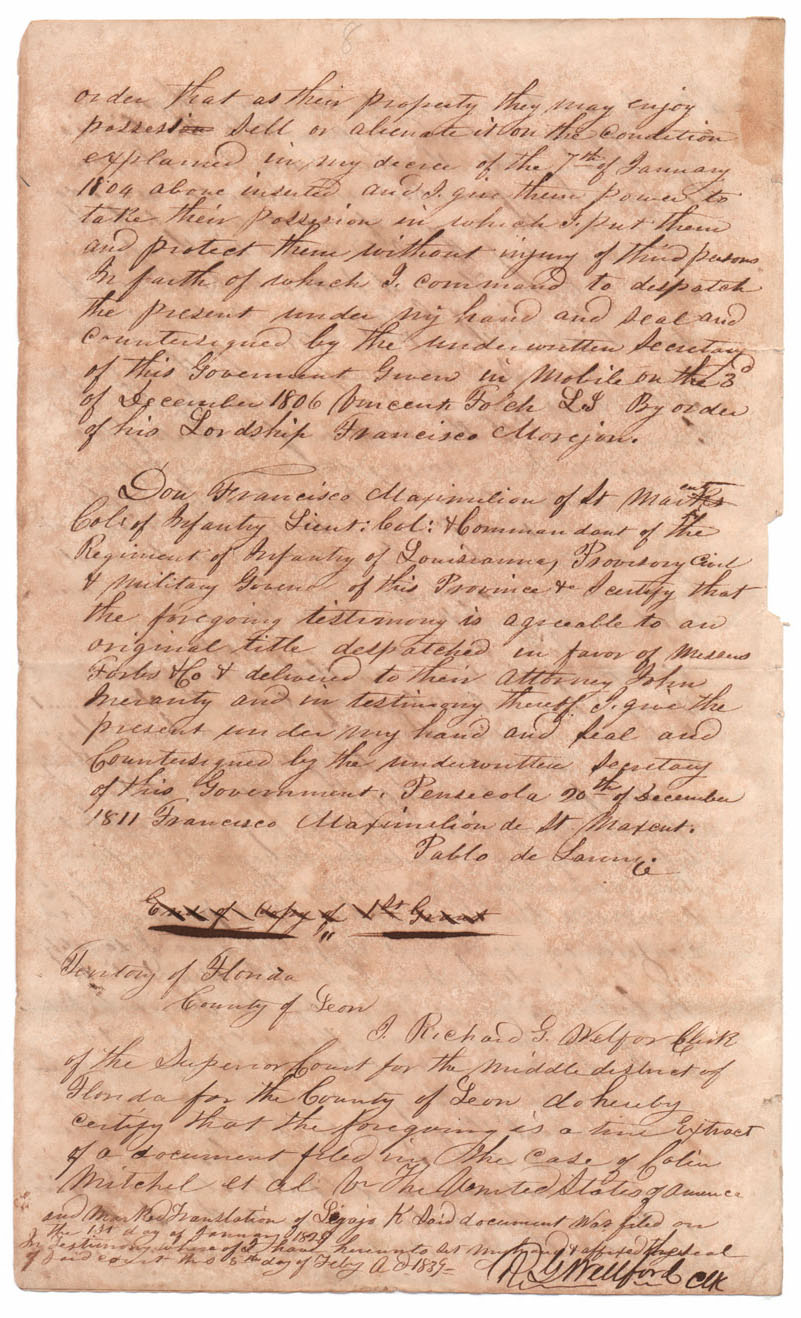 8
order that as their property they may enjoy
possession sell or alienate it on the condition
explained in my decree of the 7th of January
1804 above inserted and I give them power to
take their possession in which I put them
and protect them without injury of third persons
In faith of which I command to despatch
the present under my hand and seal and
countersigned by the underwritten Secretary
of this Government Given in Mobile on the 3d
of December 1806 Vincent Folch LS By order
of his Lordship Francisco Morejon.
Don Francisco Maximilion of St Maxent
Col: of Infantry Lieut: Col: & Commandant of the
Regiment of Infantry of Louiseanna, Provisory Civil
& Military Govenr of this Province &c I certify that
the foregoing testimony is agreeable to an
original title despatched in favor of Messrs
Forbs & Co & delivered to their attorney John
Inerarity and in testimony thereof I give the
present under my hand and seal and
Countersigned by the underwritten Secretary
of this Government, Pensecola 20th of December
1811 Francisco Maximilion de St Maxent.
Pablo de
End of Copy of 1st Grant
Territory of Florida
County of Leon
I. Richard G. Welfor Clerk
of the Superior Court for the middle district of
Florida for the County of Leon do hereby
certify that the foregoing is a true Extract
of a document filed in the case of Colin
Mitchel et al Vs The United States of America
and Marked Translation of Legajo K Said document was filed on
the 1st day of January 1829
In testimony whereof I have hereunto set my hand & affixed the seal
of said court this 5th day of Feby A D 1839
R G Wellford Clk